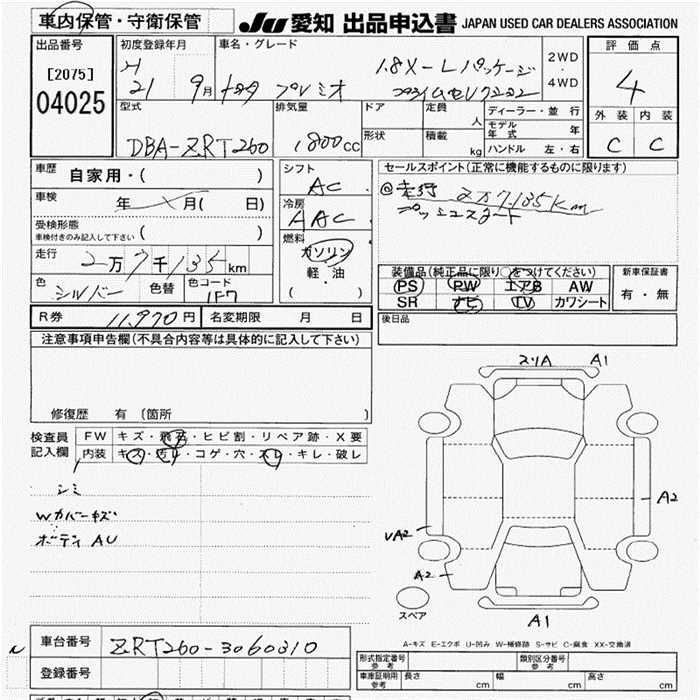 車内保管・守衛保管 JU 愛知 出品申込書 JAPAN USED CAR DEALERS ASSOCIATION
出品番号 初度登録年月 車名・グレード 評価点
[2075] H 21 9月 トヨタ プレミオ 1.8X-Lパッケージ 2WD 4WD 4
04025 外装 内装
C C
型式 排気量 ドア 定員 人 ディーラー・並行
DBA-ZRT260 1800cc 形状 積載 kg モデル年式 年
ハンドル 左・右
車歴 自家用・( ) シフト AC セールスポイント(正常に機能するものに限ります)
車検 年 月( 日) 冷房 AAC @走行 2万7.135km
プッシュスタート
受検形態 車検付きのみ記入して下さい ( ) 燃料 ガソリン
走行 2万7千135km 軽・油
( )
装備品(純正品に限り○をつけてください) 新車保証書
PS PW エアB AW 有・無
SR ナビ TV カワシート
色 シルバー 色替 色コード 1F7
R券 11,970円 名変期限 月 日 後日品
注意事項申告欄(不具合内容等は具体的に記入して下さい)
修復歴 有 〔箇所 〕
検査員記入欄 FW キズ・飛石・ヒビ割・リペア跡・X要
内装 キズ・汚れ・コゲ・穴・スレ・キレ・破レ
シミ
Wカバーキズ
ボディ AU
A1
A2
A2
A2
A1
スペア
A-キズ E-エクボ U-凹み W-補修跡 S-サビ C-腐食 XX-交換済
車台番号 ZRT260-3060310
登録番号
形式指定番号 参考 類別区分番号 参考
車庫証明用 参考 長さ cm 幅 cm 高さ cm